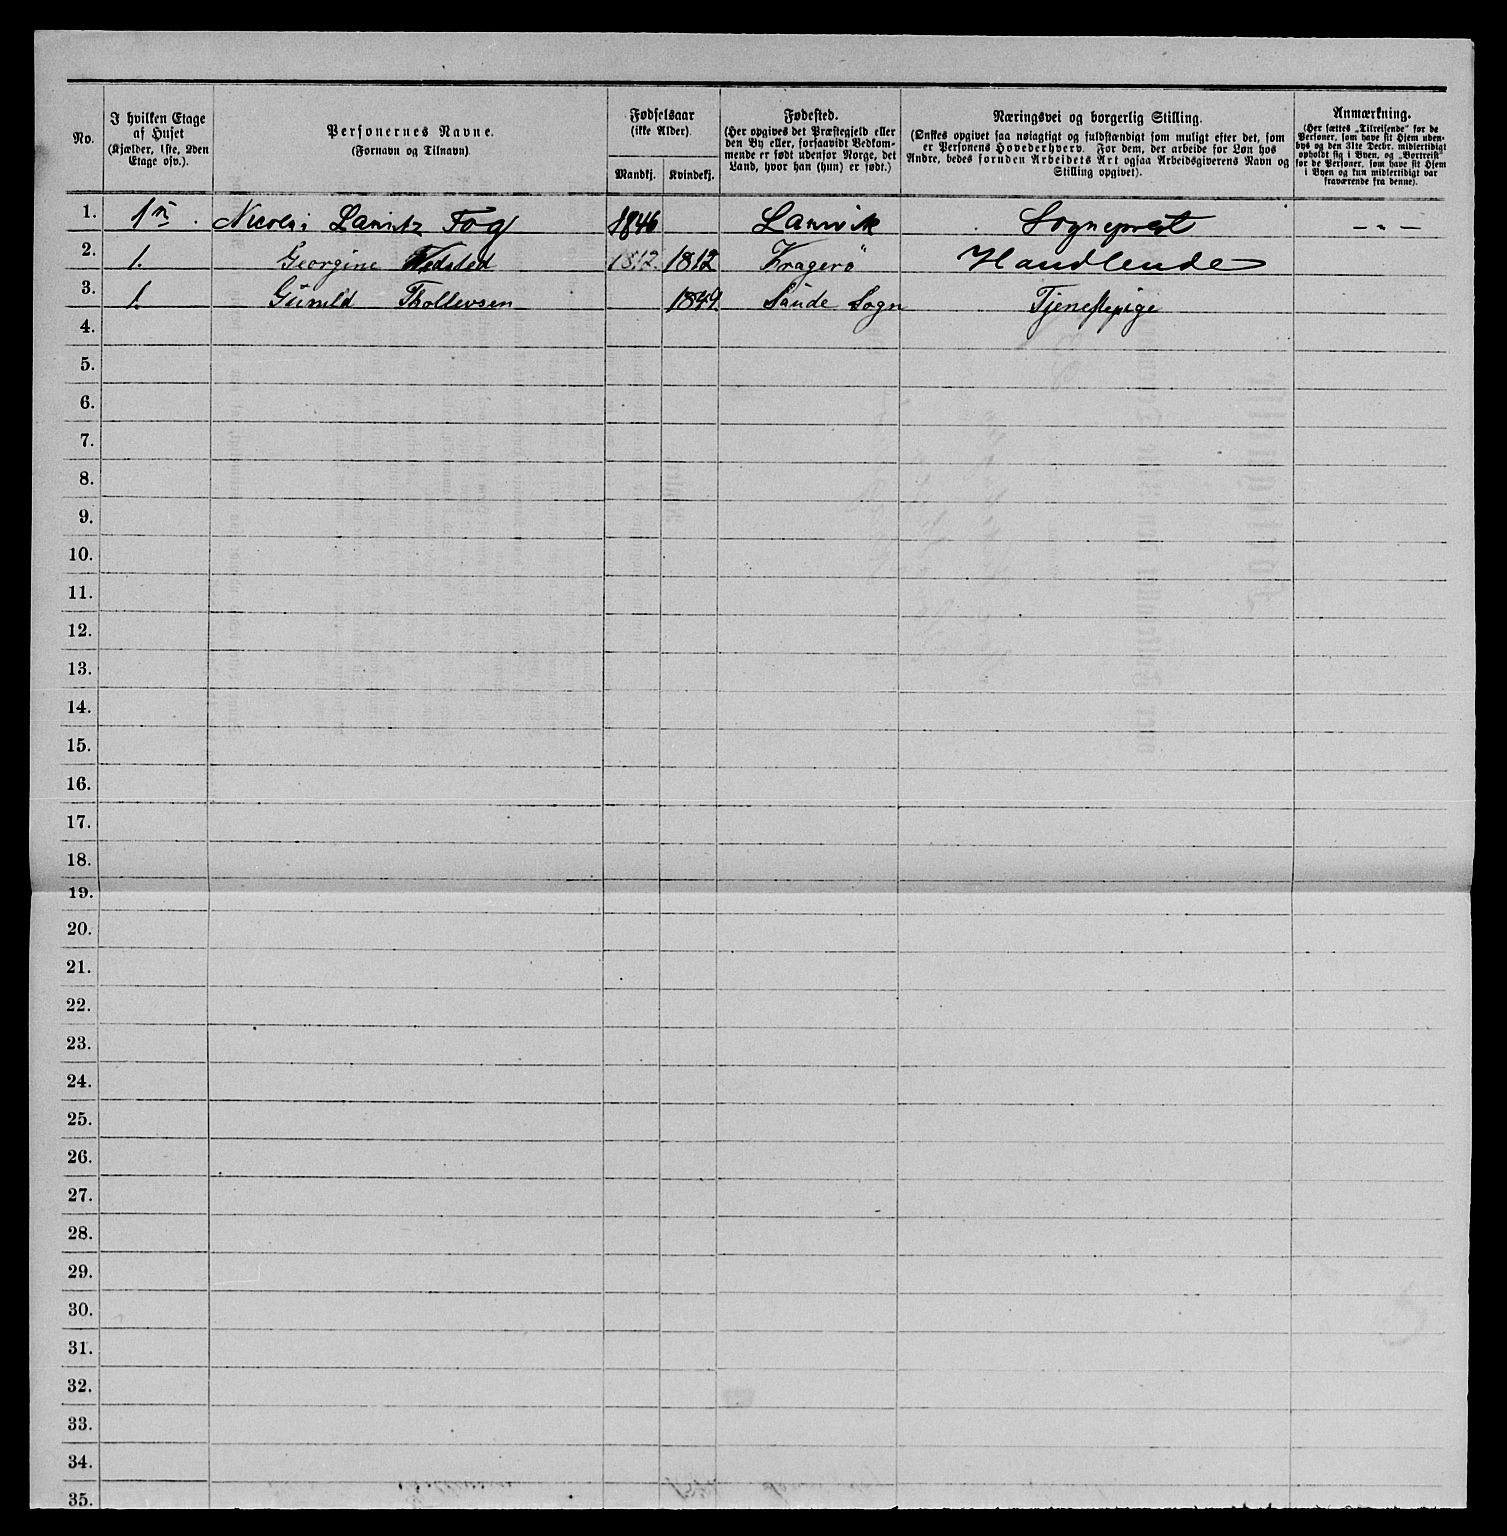 No.
I hvilken Etage
af Huset
(Kjælder, 1ste, 2den
Etage osv.).
Personernes Navne.
(Fornavn og Tilnavn).
Fødselsaar
(ikke Alder).
Mandkj. Kvindekj.
Fødested.
(Her opgives det Præstegjeld eller
den By eller, forsaavidt Vedkom-
mende er født udenfor Norge, det
Land, hvor han (hun) er født.)
Næringsvei og borgerlig Stilling.
(Ønskes opgivet saa nøiagtigt og fuldstændigt som muligt efter det, som
er Personens Hovederhverv. For dem, der arbeide for Løn hos
Andre, bedes foruden Arbeidets Art ogsaa Arbeidsgiverens Navn og
Stilling opgivet).
Anmærkning.
(Her sættes „Tilreisende“ for de
Personer, som have sit Hjem uden-
bys og den 31te Decbr. midlertidigt
opholdt sig i Byen, og „Bortreist“
for de Personer, som have sit Hjem
i Byen og kun midlertidigt var
fraværende fra denne).
1. 1ste Nicolai Fog 1846 Sogneprest - " -
2. 1. Georgine 1812 1812 Kragerö Handlende
3. 1. Gunild Thollevsen 1849 Saude Sogn Tjenestepige
4.
5.
6.
7.
8.
9.
10.
11.
12.
13.
14.
15.
16.
17.
18.
19.
20.
21.
22.
23.
24.
25.
26.
27.
28.
29.
30.
31.
32.
33.
34.
35.